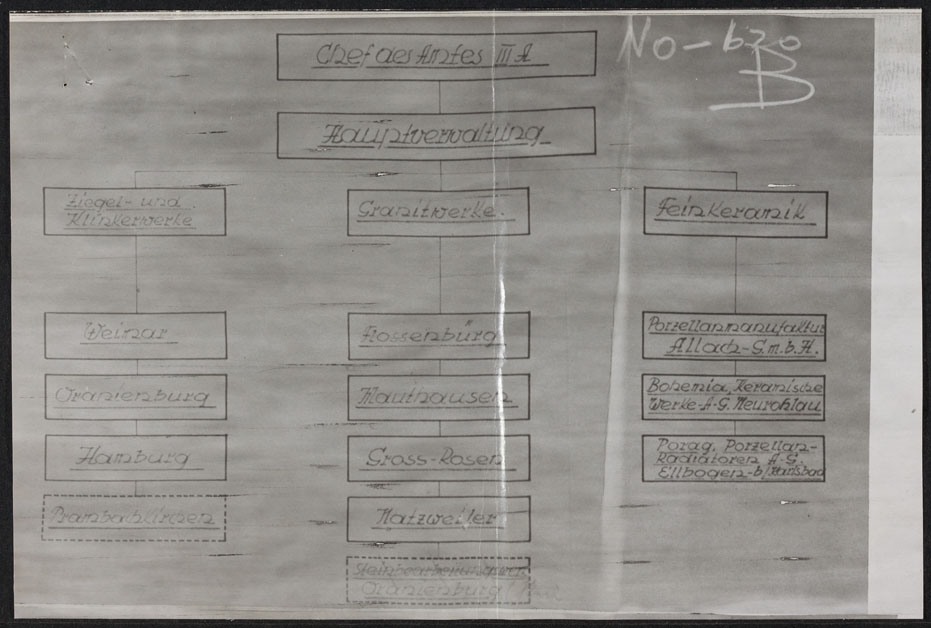 NO-620
B
Chef des Amtes III A
Hauptverwaltung
Ziegel- und
Klinkerwerke
Granitwerke.
Feinkeramik
Weimar
Flossenbürg
Porzellanmanufaktur
Allach-G.m.b.H.
Oranienburg
Mauthausen
Bohemia, Keramische
Werke-A-G. Neurohlau
Hamburg
Gross-Rosen
Porag, Porzellan-
Radiatoren A-G.
Ellbogen-b/Karlsbad
Prambachkirchen
Natzweiler
Oranienburg